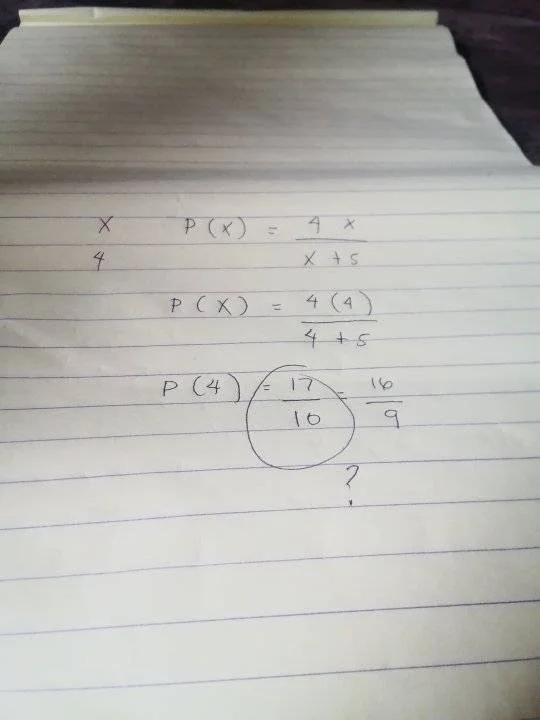 X P(X) = 4 x / x + 5
4
P(X) = 4(4) / 4 + 5
P(4) = 17 / 10 = 16 / 9
?